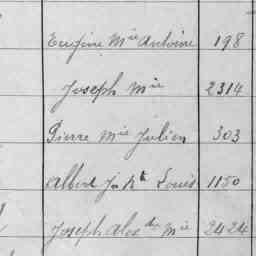 Eugène Mie Antoine 198
Joseph Mie 2314
Pierre Mie Julien 303
Albert Louis 1150
Joseph Alexdre Mie 2424